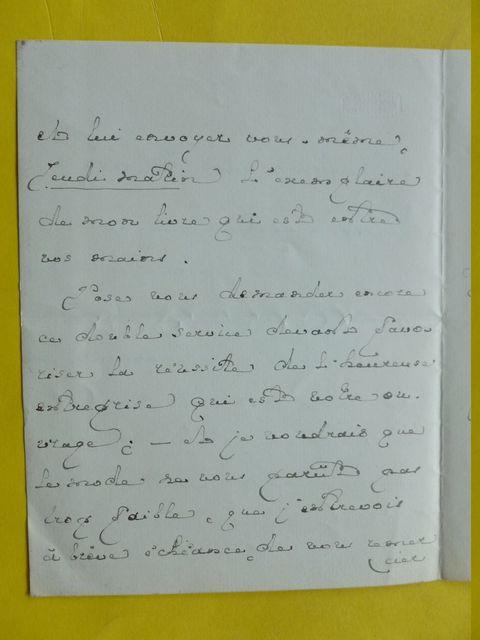 et lui envoyer vous-même,
Jeudi matin l'exemplaire
de mon livre qui est entre
vos mains.
J'ose vous demander encore
ce double service devant favo
riser la réussite de l'heureuse
entreprise qui est votre ou-
vrage ; — et je voudrais que
le mode ne vous parût pas
trop faible, que j'entrevois
à brève échéance, de vous remer
cier